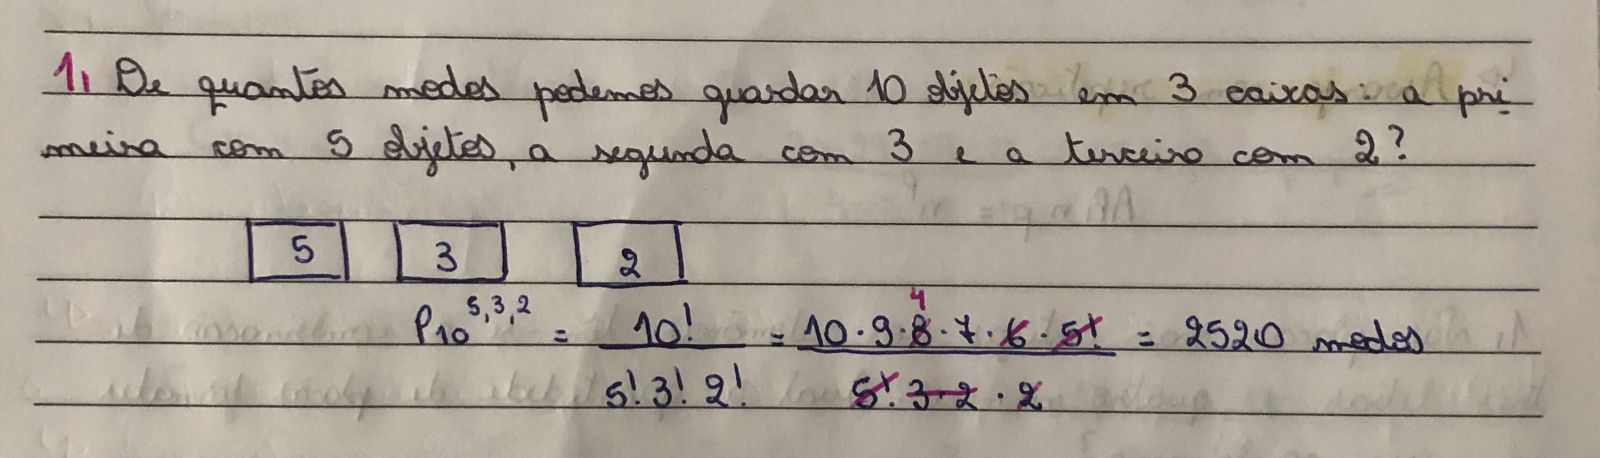 1, De quantos modos podemos guardar 10 objetos em 3 caixas: a pri
meira com 5 objetos, a segunda com 3 e a terceira com 2?
5 3 2
P10^5,3,2 = 10! / 5! 3! 2! = 10 · 9 · 8 · 7 · 6 · 5! / 5! 3 · 2 · 2 = 2520 modos
4